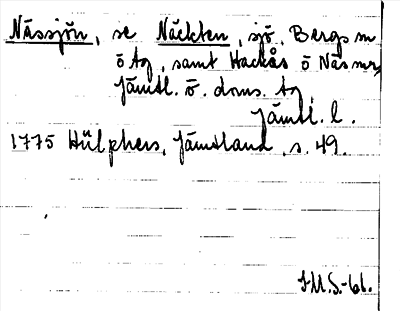 Nässjön, se Näckten, sjö, Bergs sn
ö tg, samt Hackås o Näs snr,
Jämtl. ö. doms. tg,
Jämtl. l.
1775 Hülphers, Jämtland, s. 49.
I.M.S.-61.